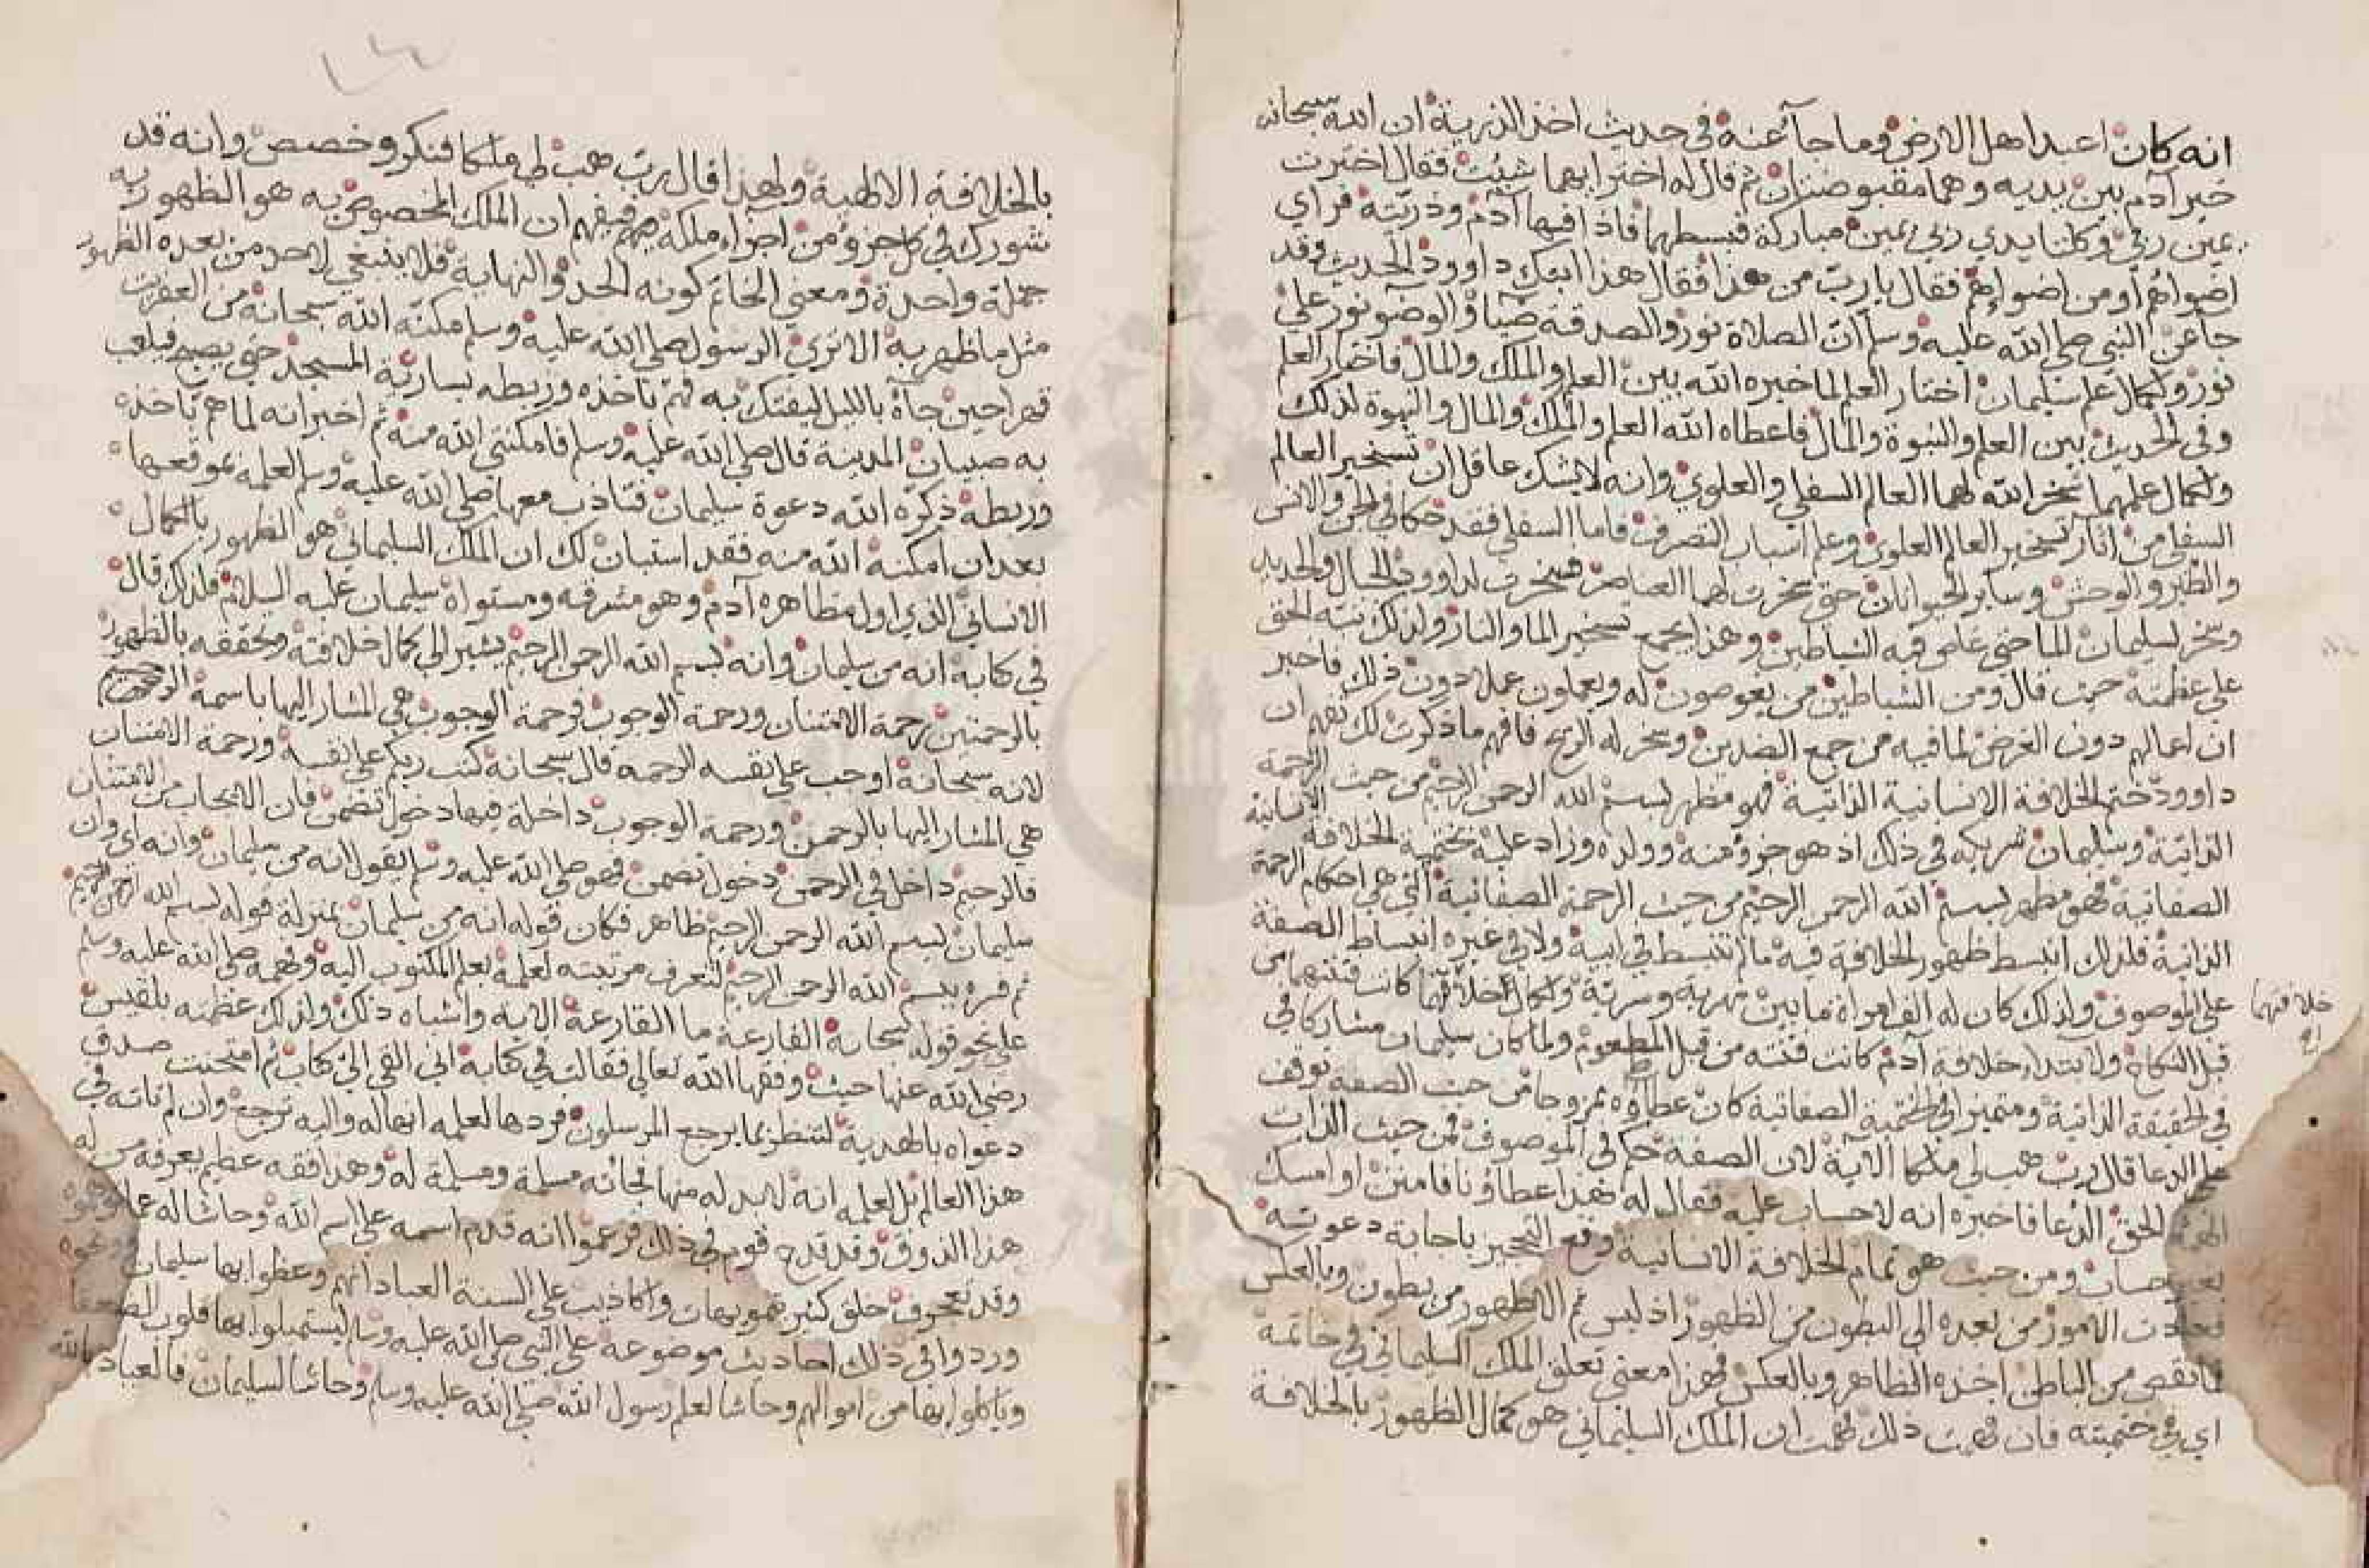 انه كان اعبد اهل الارض وما جآ عنه في حديث اخذ الذرية ان الله سبحانه
خير آدم بين يديه وهما مقبوضتان ثم قال له اختر ايهما شيت فقال اخترت
يمين ربي وكلتا يدي ربي يمين مباركة فبسطهما فاذا فيها آدم وذريته فراي
اضواهم او من اضواهم فقال يا رب من هذا فقال هذا ابنك داوود الحديث وقد
جآ عن النبي صلى الله عليه وسلم ان الصلاة نور والصدقة ضيآ والوضو نور على
نور ولكمال علم سليمان اختار العلم لما خيره الله بين العلم والملك والمال فاختار العلم
وفي الحديث بين العلم والنبوة والمال فاعطاه الله العلم والملك والمال والنبوة لذلك
ولكمال علمهما سخر الله لهما العالم السفلي والعلوي وانه لا يشك عاقل ان تسخير العالم
السفلي من اثار تسخير العالم العلوي وعلم اسباب التصرف فاما السفلي فقد حكما في الجن والانس
والطير والوحش وساير الحيوانات حتى سخرت لهما العناصر فسخرت لداوود الجبال والحديد
وسخر لسليمان الما حتى غاص فيه الشياطين وهذا يجمع تسخير الما والنار ولذلك نبه الحق
على عظمته حيث قال ومن الشياطين من يغوصون له ويعملون عملا دون ذلك فاخبر
ان اعمالهم دون الغوص لما فيه من جمع الضدين وسخر له الريح فافهم ما ذكرت لك تفهم ان
داوود ختم الخلافة الانسانية الذاتية فهو مظهر لبسم الله الرحمن الرحيم من حيث الرحمة
الذاتية وسليمان شريكه في ذلك اذ هو جزؤ منه وولده وزاد عليه بختمية الخلافة الانسانية
الصفاتية فهو مظهر لبسم الله الرحمن الرحيم من حيث الرحمة الصفاتية التي هي احكام الرحمة
الذاتية فلذلك انبسط ظهور الخلافة فيه ما لم تنبسط في ابيه ولا في غيره انبساط الصفة
على الموصوف ولذلك كان له الف امراة ما بين مهرية وسرية ولكمال خلافتها كانت فتنتهما من
خلافتهما
قبل النكاح ولابتداء خلافة آدم كانت فتنته من قبل المطعوم ولما كان سليمان مشاركا في
في الحقيقة الذاتية ومتميزا في الختمية الصفاتية كان عطاؤه ممزوجا من حيث الصفة توقف
على الدعا قال رب هب لي ملكا الآية لان الصفة حكم في الموصوف فمن حيث الذات
الحق الدعا فاخبره انه لا حساب عليه فقال له هذا عطاؤنا فامنن او امسك
بغير حساب ومن حيث هو تمام الخلافة الانسانية وقع التحجير باجابة دعوته
فعادت الامور من بعده الى البطون من الظهور اذ ليس ثم الا ظهور من بطون وبالعكس
فما نقص من الباطن اخذه الظاهر وبالعكس فهذا معنى تعلق الملك السليماني في خاتمه
اي في ختميته فان فهمت ذلك فهمت ان الملك السليماني هو كمال الظهور بالخلافة
بالخلافة الالهية ولهذا قال رب هب لي ملكا فنكر وخصص وانه قد
شورك في كل جزؤ من اجزاء ملكه فيفهم ان الملك المخصوص به هو الظهور به
جملة واحدة ومعنى الخاتم كونه الحد والنهاية فلا ينبغي لاحد من بعده الظهور
مثل ما ظهر به الا ترى الرسول صلى الله عليه وسلم مكنه الله سبحانه من العفريت
قهرا حين جآه بالليل ليفتك به فهم باخذه وربطه بسارية المسجد حتى يصبح فيلعب
به صبيان المدينة قال صلى الله عليه وسلم فامكنني الله منه ثم اخبر انه لما هم باخذه
وربطه ذكره الله دعوة سليمان فتاذب معها صلى الله عليه وسلم لعلمه بموقعها
بعد ان امكنه الله منه فقد استبان لك ان الملك السليماني هو الظهور بالكمال
الانساني الذي اول مظاهره آدم وهو مشرفه ومستواه سليمان عليه السلام فلذلك قال
في كتابه انه من سليمان وانه بسم الله الرحمن الرحيم يشير الى كمال خلافته وتحققه بالظهور
بالرحمتين رحمة الامتنان ورحمة الوجوب فرحمة الوجوب هي المشار اليها باسمه الرحيم
لانه سبحانه اوجب على نفسه الرحمة قال سبحانه كتب ربكم على نفسه ورحمة الامتنان
هي المشار اليها بالرحمن ورحمة الوجوب داخلة فيها دخول تضمن فان الايجاب من الامتنان
فالرحيم داخل في الرحمن دخول تضمن فهو صلى الله عليه وسلم يقول انه من سليمان وانه اي وان
سليمان لبسم الله الرحمن الرحيم ظاهر فكان قوله انه من سليمان بمنزلة قوله بسم الله الرحمن الرحيم
ثم فسره ببسم الله الرحمن الرحيم لتعرف مرتبته لعلمه بعلم المكتوب اليه وفهمه صلى الله عليه وسلم
على نحو قوله سبحانه القارعة ما القارعة الاية واشباه ذلك ولذلك عظمته بلقيس
رضي الله عنها حيث وفقها الله تعالى فقالت في كتابه اني القي الي كتاب ثم امتحنت صدق
دعواه بالهدية لتنظر بما يرجع المرسلون فردها لعلمه انها له واليه ترجع وان لم تاته في
هذا العالم بل لعلمه انه لا بد له منها فجاته مسلمة ومسلمة له وهذا فقه عظيم يعرفه من له
هذا الذوق وقد قدح قوم في ذلك فزعموا انه قدم اسمه على اسم الله وحاشا له عما
وقد تعجرف خلق كثير بتمويهات واكاذيب على السنة العباد انهم وعظوا بها سليمان
وردوا في ذلك احاديث موضوعة على النبي صلى الله عليه وسلم ليستميلوا بها قلوب الضعفا
وياكلوا بها من اموالهم وحاشا لعلم رسول الله صلى الله عليه وسلم وحاشا لسليمان فالعياذ بالله